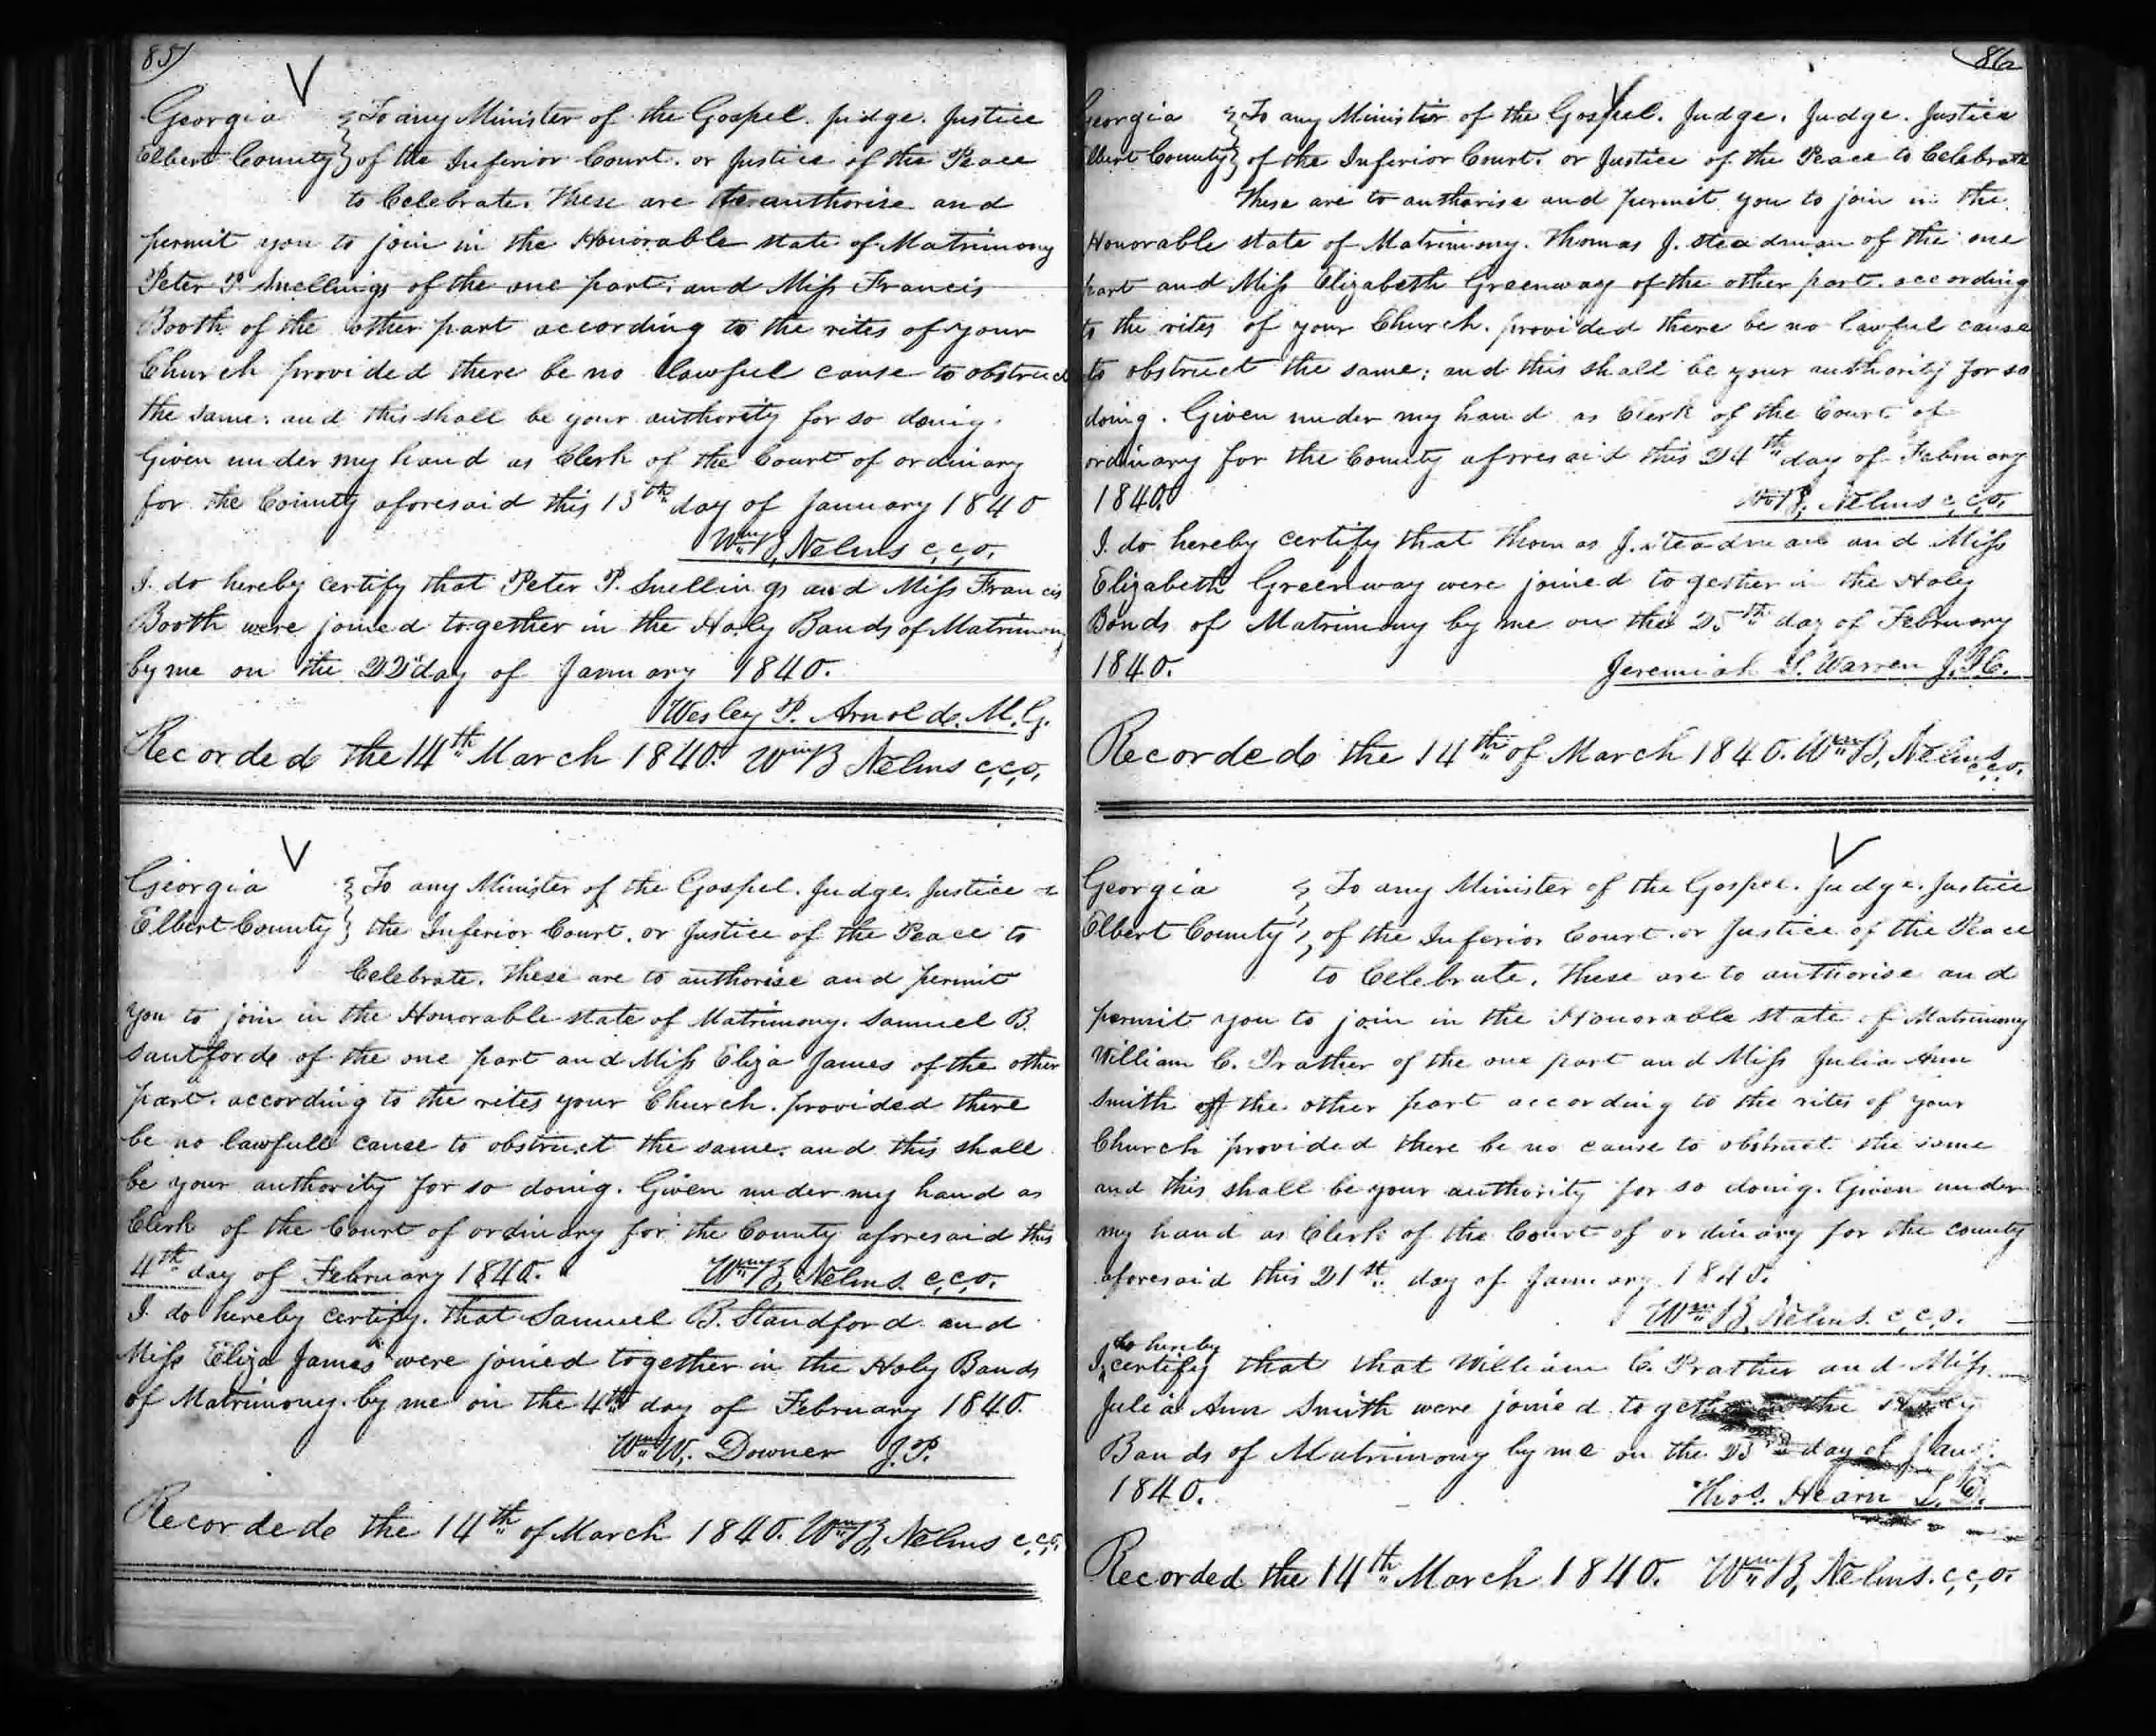 85)
Georgia } To any Minister of the Gospel. Judge. Justice
Elbert County } of the Inferior Court. or Justice of the Peace
to Celebrate. These are to authorise and
permit you to join in the Honorable state of Matrimony
Peter P. Snellings of the one part; and Miss Francis
Booth of the other part according to the rites of your
Church provided there be no lawful cause to obstruct
the same: and this shall be your authority for so doing.
Given under my hand as Clerk of the Court of ordinary
for the County aforesaid this 13th day of January 1840
Wm B, Nelms c,c,o,
I. do hereby certify that Peter P. Snellings and Miss Francis
Booth were joined together in the Holy Bands of Matrimony
by me on the 22d day of January 1840.
Wesley P. Arnold. M.G.
Recorded the 14th March 1840. Wm B Nelms c,c,o,
Georgia } To any Minister of the Gospel. Judge. Justice
Elbert County } the Inferior Court. or Justice of the Peace to
Celebrate. These are to authorise and permit
you to join in the Honorable state of Matrimony. Samuel B.
Santford of the one part and Miss Eliza James of the other
part. according to the rites your Church. provided there
be no lawfull cause to obstruct the same. and this shall
be your authority for so doing. Given under my hand as
Clerk of the Court of ordinary for the County aforesaid this
4th day of February 1840. Wm B, Nelms. c,c,o,
I do hereby certify. that Samuel B. Standford and
Miss Eliza James were joined together in the Holy Bands
of Matrimony. by me on the 4th day of February 1840.
Wm W. Downer J.P.
Recorded the 14th of March 1840. Wm B, Nelms c,c,o,
86
Georgia } To any Minister of the Gospel. Judge. Judge. Justice
Elbert County } of the Inferior Court. or Justice of the Peace to Celebrate
These are to authorise and permit you to join in the
Honorable state of Matrimony. Thomas J. Steadman of the one
part and Miss Elizabeth Greenway of the other part. according
to the rites of your Church. provided there be no lawful cause
to obstruct the same; and this shall be your authority for so
doing. Given under my hand as Clerk of the Court of
ordinary for the County aforesaid this 24th day of February
1840. Wm B, Nelms c,c,o,
I. do hereby certify that Thomas J. Steadman and Miss
Elizabeth Greenway were joined together in the Holy
Bonds of Matrimony by me on the 25th day of February
1840. Jeremiah S. Warren J.I.C.
Recorded the 14th of March 1840. Wm B, Nelms c,c,o,
Georgia } To any Minister of the Gospel. Judge. Justice
Elbert County } of the Inferior Court. or Justice of the Peace
to Celebrate. These are to authorise and
permit you to join in the Honorable state of Matrimony
William C. Prather of the one part and Miss Julia Ann
Smith of the other part according to the rites of your
Church provided there be no cause to obstruct the same
and this shall be your authority for so doing. Given under
my hand as Clerk of the Court of ordinary for the county
aforesaid this 21st day of January 1840.
Wm B, Nelms. c,c,o.
I, do hereby certify that that William C. Prather and Miss
Julia Ann Smith were joined together the Holy
Bands of Matrimony by me on the 23rd day of Jany.
1840. Thos. Hearn
Recorded the 14th March 1840. Wm B, Nelms. c,c,o.